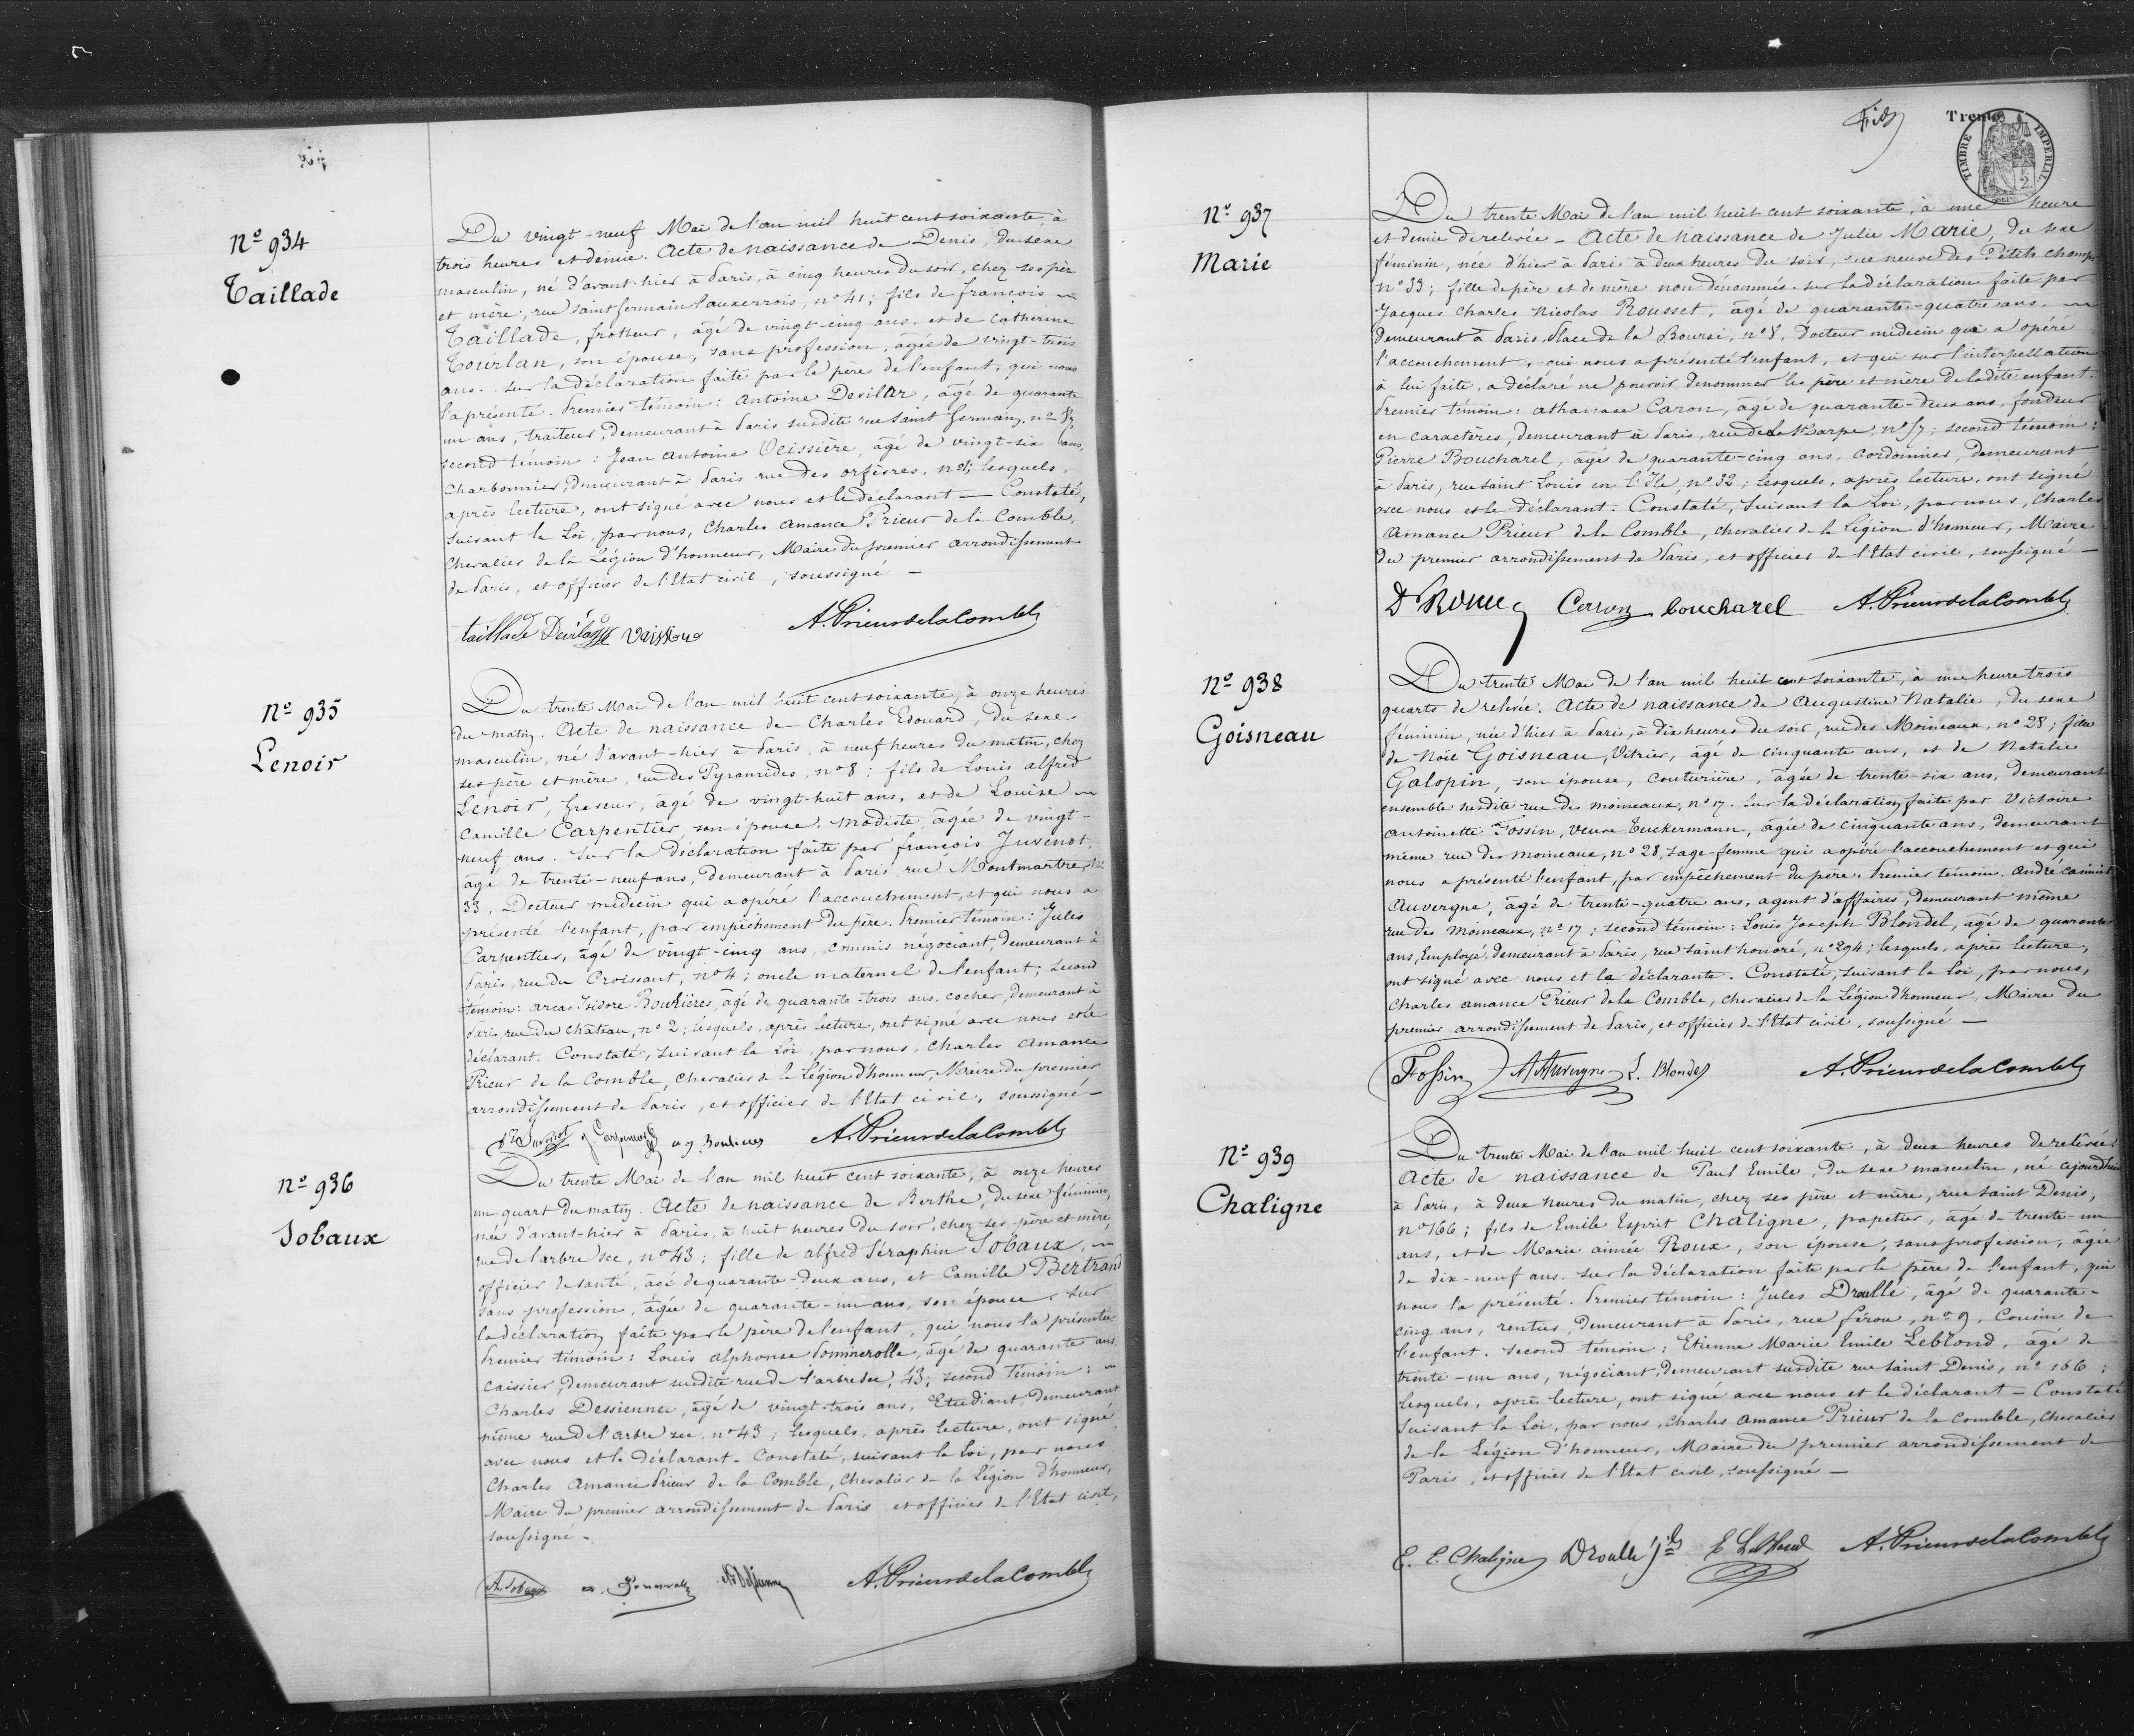 Nº 934
Taillade
Du vingt-neuf Mai de l'an mil huit cent soixante, à
trois heures et demie. Acte de naissance de Denis, du sexe
masculin, né d'avant-hier à Paris, à cinq heures du soir, chez ses père
et mère, rue Saint Germain l'auxerrois, nº 41; fils de françois
Taillade, frotteur, âgé de vingt-cinq ans, et de Catherine
son épouse, sans profession, âgée de vingt-trois
ans. Sur la déclaration faite par le père de l'enfant, qui nous
l'a présenté. Premier témoin: Antoine Devilar, âgé de quarante
un ans, traiteur, demeurant à Paris susdite rue Saint Germain, nº
second témoin: Jean Antoine âgé de vingt-six ans,
charbonnier, demeurant à Paris rue des orfèvres, nº lesquels,
après lecture, ont signé avec nous et le déclarant — Constaté,
suivant la Loi, par nous, Charles Amance Prieur de la Comble,
chevalier de la Légion d'honneur, Maire du premier arrondissement
de Paris, et officier de l'Etat civil, soussigné —
taillade A. Prieur de la Comble
Nº 935
Lenoir
Du trente Mai de l'an mil huit cent soixante, à onze heures
du matin. Acte de naissance de Charles Edouard, du sexe
masculin, né d'avant-hier à Paris, à neuf heures du matin, chez
ses père et mère, rue des Pyramides, nº 8; fils de Louis alfred
Lenoir, graveur, âgé de vingt-huit ans, et de Louise
Camille Carpentier, son épouse, modiste, âgée de vingt-
neuf ans. Sur la déclaration faite par françois Juvenot,
âgé de trente-neuf ans, demeurant à Paris rue Montmartre, nº
33, Docteur médecin qui a opéré l'accouchement, et qui nous a
présenté l'enfant, par empêchement du père. Premier témoin: Jules
Carpentier, âgé de vingt-cinq ans, commis négociant, demeurant à
Paris, rue du Croissant, nº 4; oncle maternel de l'enfant; second
témoin: Isidore âgé de quarante-trois ans, cocher, demeurant à
Paris, rue du Château, nº 2; lesquels, après lecture, ont signé avec nous et le
déclarant. Constaté, suivant la Loi, par nous, Charles Amance
Prieur de la Comble, chevalier de la Légion d'honneur, Maire du premier
arrondissement de Paris, et officier de l'Etat civil, soussigné —
A. Prieur de la Comble
Nº 936
Jobaux
Du trente Mai de l'an mil huit cent soixante, à onze heures
un quart du matin. Acte de naissance de Berthe, du sexe féminin,
née d'avant-hier à Paris, à huit heures du soir, chez ses père et mère,
rue de l'arbre sec, nº 43; fille de alfred Séraphin Jobaux,
officier de santé, âgé de quarante-deux ans, et Camille Bertrand
sans profession, âgée de quarante-un ans, son épouse. Sur
la déclaration faite par le père de l'enfant, qui nous l'a présentée.
Premier témoin: Louis alphonse âgé de quarante ans
caissier, demeurant susdite rue de l'arbre sec, 43; second témoin:
Charles Dessienne, âgé de vingt-trois ans, Etudiant, demeurant
même rue de l'arbre sec, nº 43; lesquels, après lecture, ont signé
avec nous et le déclarant. Constaté, suivant la Loi, par nous
Charles Amance Prieur de la Comble, Chevalier de la Légion d'honneur,
Maire du premier arrondissement de Paris et officier de l'Etat civil,
soussigné —
A. Jobaux A. Prieur de la Comble
Trente
TIMBRE IMPERIAL
Nº 937
Marie
Du trente Mai de l'an mil huit cent soixante, à une heure
et demie de relevée — Acte de naissance de Julie Marie, du sexe
féminin, née d'hier à Paris à deux heures du soir, rue neuve des Petits champs
nº 33; fille de père et de mère non dénommés. Sur la déclaration faite par
Jacques Charles Nicolas Rousset, âgé de quarante-quatre ans,
demeurant à Paris, Place de la Bourse, nº 8, Docteur médecin qui a opéré
l'accouchement, qui nous a présenté l'enfant, et qui sur l'interpellation
à lui faite, a déclaré ne pouvoir dénommer les père et mère de ladite enfant.
Premier témoin: athanase Caron, âgé de quarante-deux ans, fondeur
en caractères, demeurant à Paris, rue de la Harpe, nº 57; second témoin:
Pierre Boucharel, âgé de quarante-cinq ans, cordonnier, demeurant
à Paris, rue Saint Louis en l'Ile, nº 32; lesquels, après lecture, ont signé
avec nous et le déclarant. Constaté, suivant la Loi, par nous, Charles
Amance Prieur de la Comble, chevalier de la Légion d'honneur, Maire
du premier arrondissement de Paris, et officier de l'Etat civil, soussigné —
Caron boucharel A. Prieur de la Comble
Nº 938
Goisneau
Du trente Mai de l'an mil huit cent soixante, à une heure trois
quarts de relevée. Acte de naissance de Augustine Natalie, du sexe
féminin, née d'hier à Paris, à dix heures du soir, rue des Moineaux, nº 28; fille
de Noël Goisneau, Vitrier, âgé de cinquante ans, et de Natalie
Galopin, son épouse, couturière, âgée de trente-six ans, demeurant
ensemble susdite rue des moineaux, nº 17. Sur la déclaration faite par Victoire
Antoinette Fossin, veuve Tuckermann, âgée de cinquante ans, demeurant
même rue des moineaux, nº 28, sage-femme qui a opéré l'accouchement et qui
nous a présenté l'enfant, par empêchement du père. Premier témoin: André Casimir
Auvergne, âgé de trente-quatre ans, agent d'affaires, demeurant même
rue des moineaux, nº 17; second témoin: Louis Joseph Blondel, âgé de quarante
ans, Employé, demeurant à Paris, rue Saint honoré, nº 294; lesquels, après lecture,
ont signé avec nous et la déclarante. Constaté, suivant la Loi, par nous,
Charles Amance Prieur de la Comble, chevalier de la Légion d'honneur, Maire du
premier arrondissement de Paris, et officier de l'Etat civil, soussigné —
Fossin A Auvergne L. Blondel A. Prieur de la Comble
Nº 939
Chaligne
Du trente Mai de l'an mil huit cent soixante, à deux heures de relevée
Acte de naissance de Paul Emile, du sexe masculin, né cejourd'hui
à Paris, à deux heures du matin, chez ses père et mère, rue Saint Denis,
nº 166; fils de Emile Esprit Chaligne, papetier, âgé de trente-un
ans, et de Marie aimée Roux, son épouse, sans profession, âgée
de dix-neuf ans. Sur la déclaration faite par le père de l'enfant, qui
nous l'a présenté. Premier témoin: Jules Droullé, âgé de quarante-
cinq ans, rentier, demeurant à Paris, rue férou, nº 9, Cousin de
l'enfant. Second témoin: Etienne Marie Emile Leblond, âgé de
trente-un ans, négociant, demeurant susdite rue Saint Denis, nº 166;
lesquels, après lecture, ont signé avec nous et le déclarant — Constaté
suivant la Loi, par nous, Charles Amance Prieur de la Comble, chevalier
de la Légion d'honneur, Maire du premier arrondissement de
Paris, et officier de l'Etat civil, soussigné —
E. E. Chaligne Droullé Jles E Leblond A. Prieur de la Comble